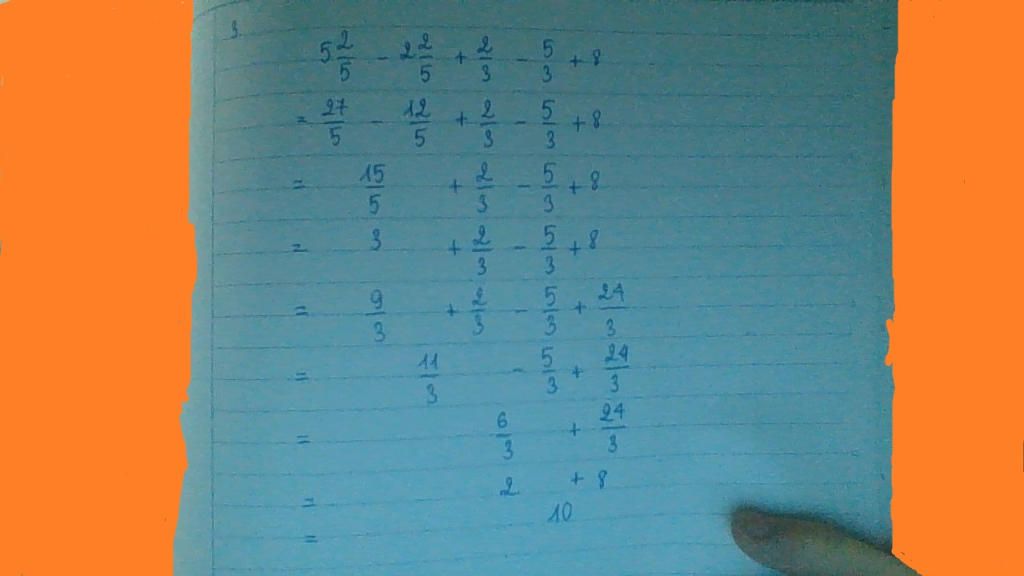 3.
5 2/5 - 2 2/5 + 2/3 - 5/3 + 8
= 27/5 - 12/5 + 2/3 - 5/3 + 8
= 15/5 + 2/3 - 5/3 + 8
= 3 + 2/3 - 5/3 + 8
= 9/3 + 2/3 - 5/3 + 24/3
= 11/3 - 5/3 + 24/3
= 6/3 + 24/3
= 2 + 8
= 10